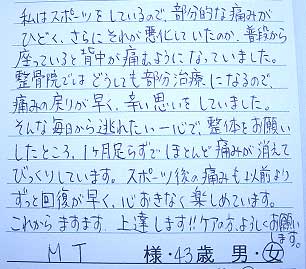 私はスポーツをしているので、部分的な痛みが
ひどく、さらにそれが悪化していたのか、普段から
座っていると背中が痛むようになっていました。
整骨院ではどうしても部分治療になるので、
痛みの戻りが早く、辛い思いをしていました。
そんな毎日から逃れたい一心で、整体をお願い
したところ、1ヶ月足らずでほとんど痛みが消えて
びっくりしています。スポーツ後の痛みも以前より
ずっと回復が早く、心おきなく楽しめています。
これからますます、上達します!!ケアの方、よろしくお願
します。
MT 様・43歳 男・女